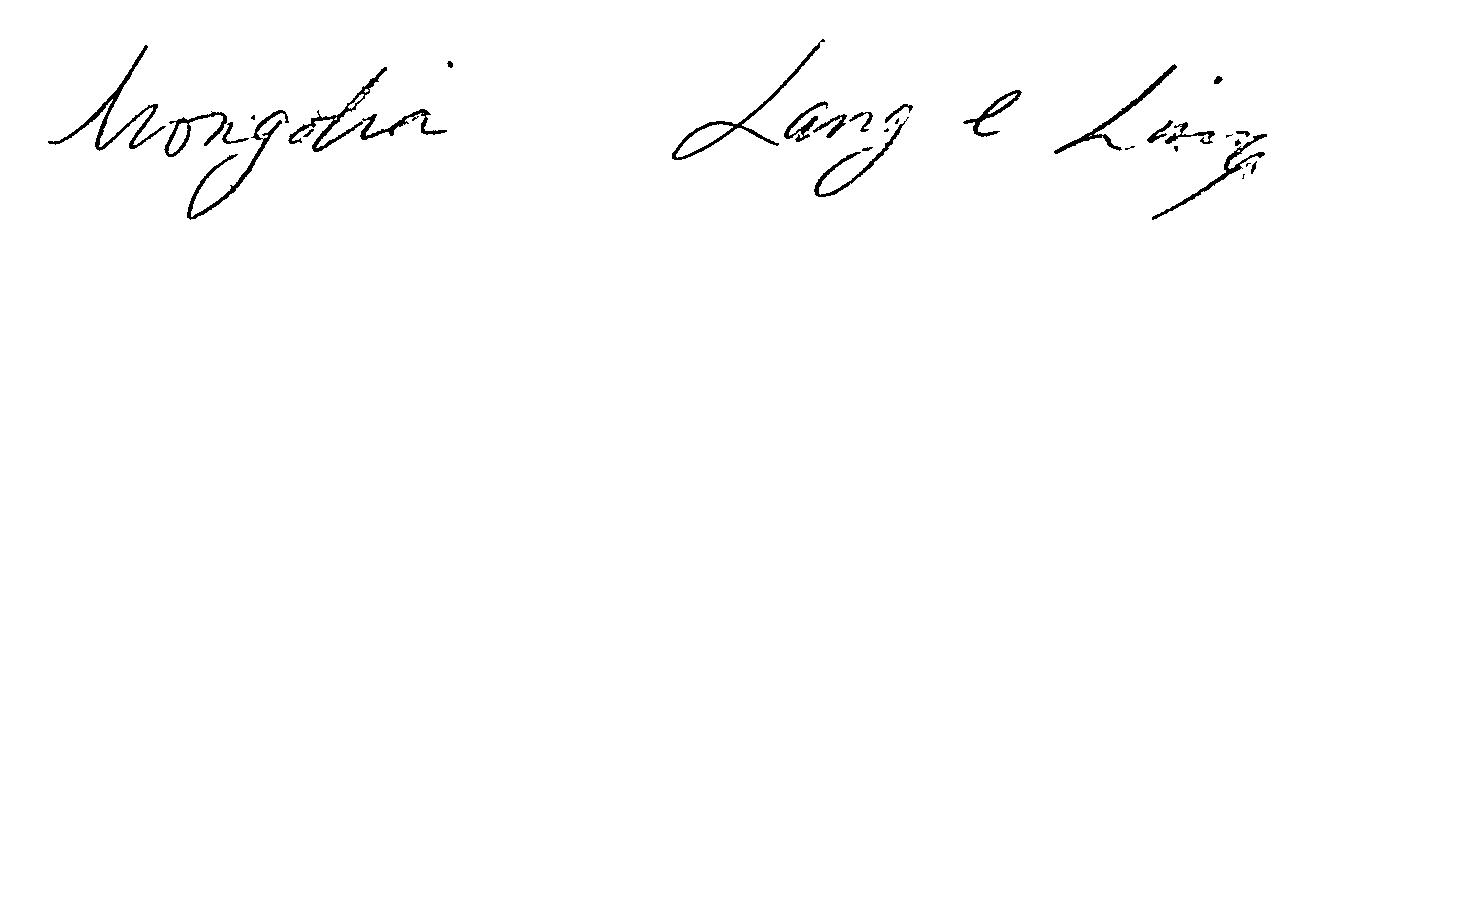 Mongolia Lang e Ling